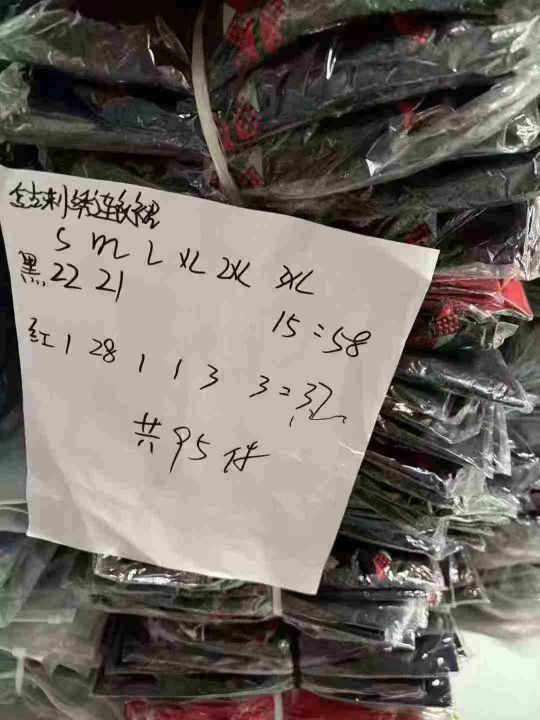 S M L XL 2XL 3XL
黑 22 21 15=58
红 1 28 1 1 3 3=37
共95件